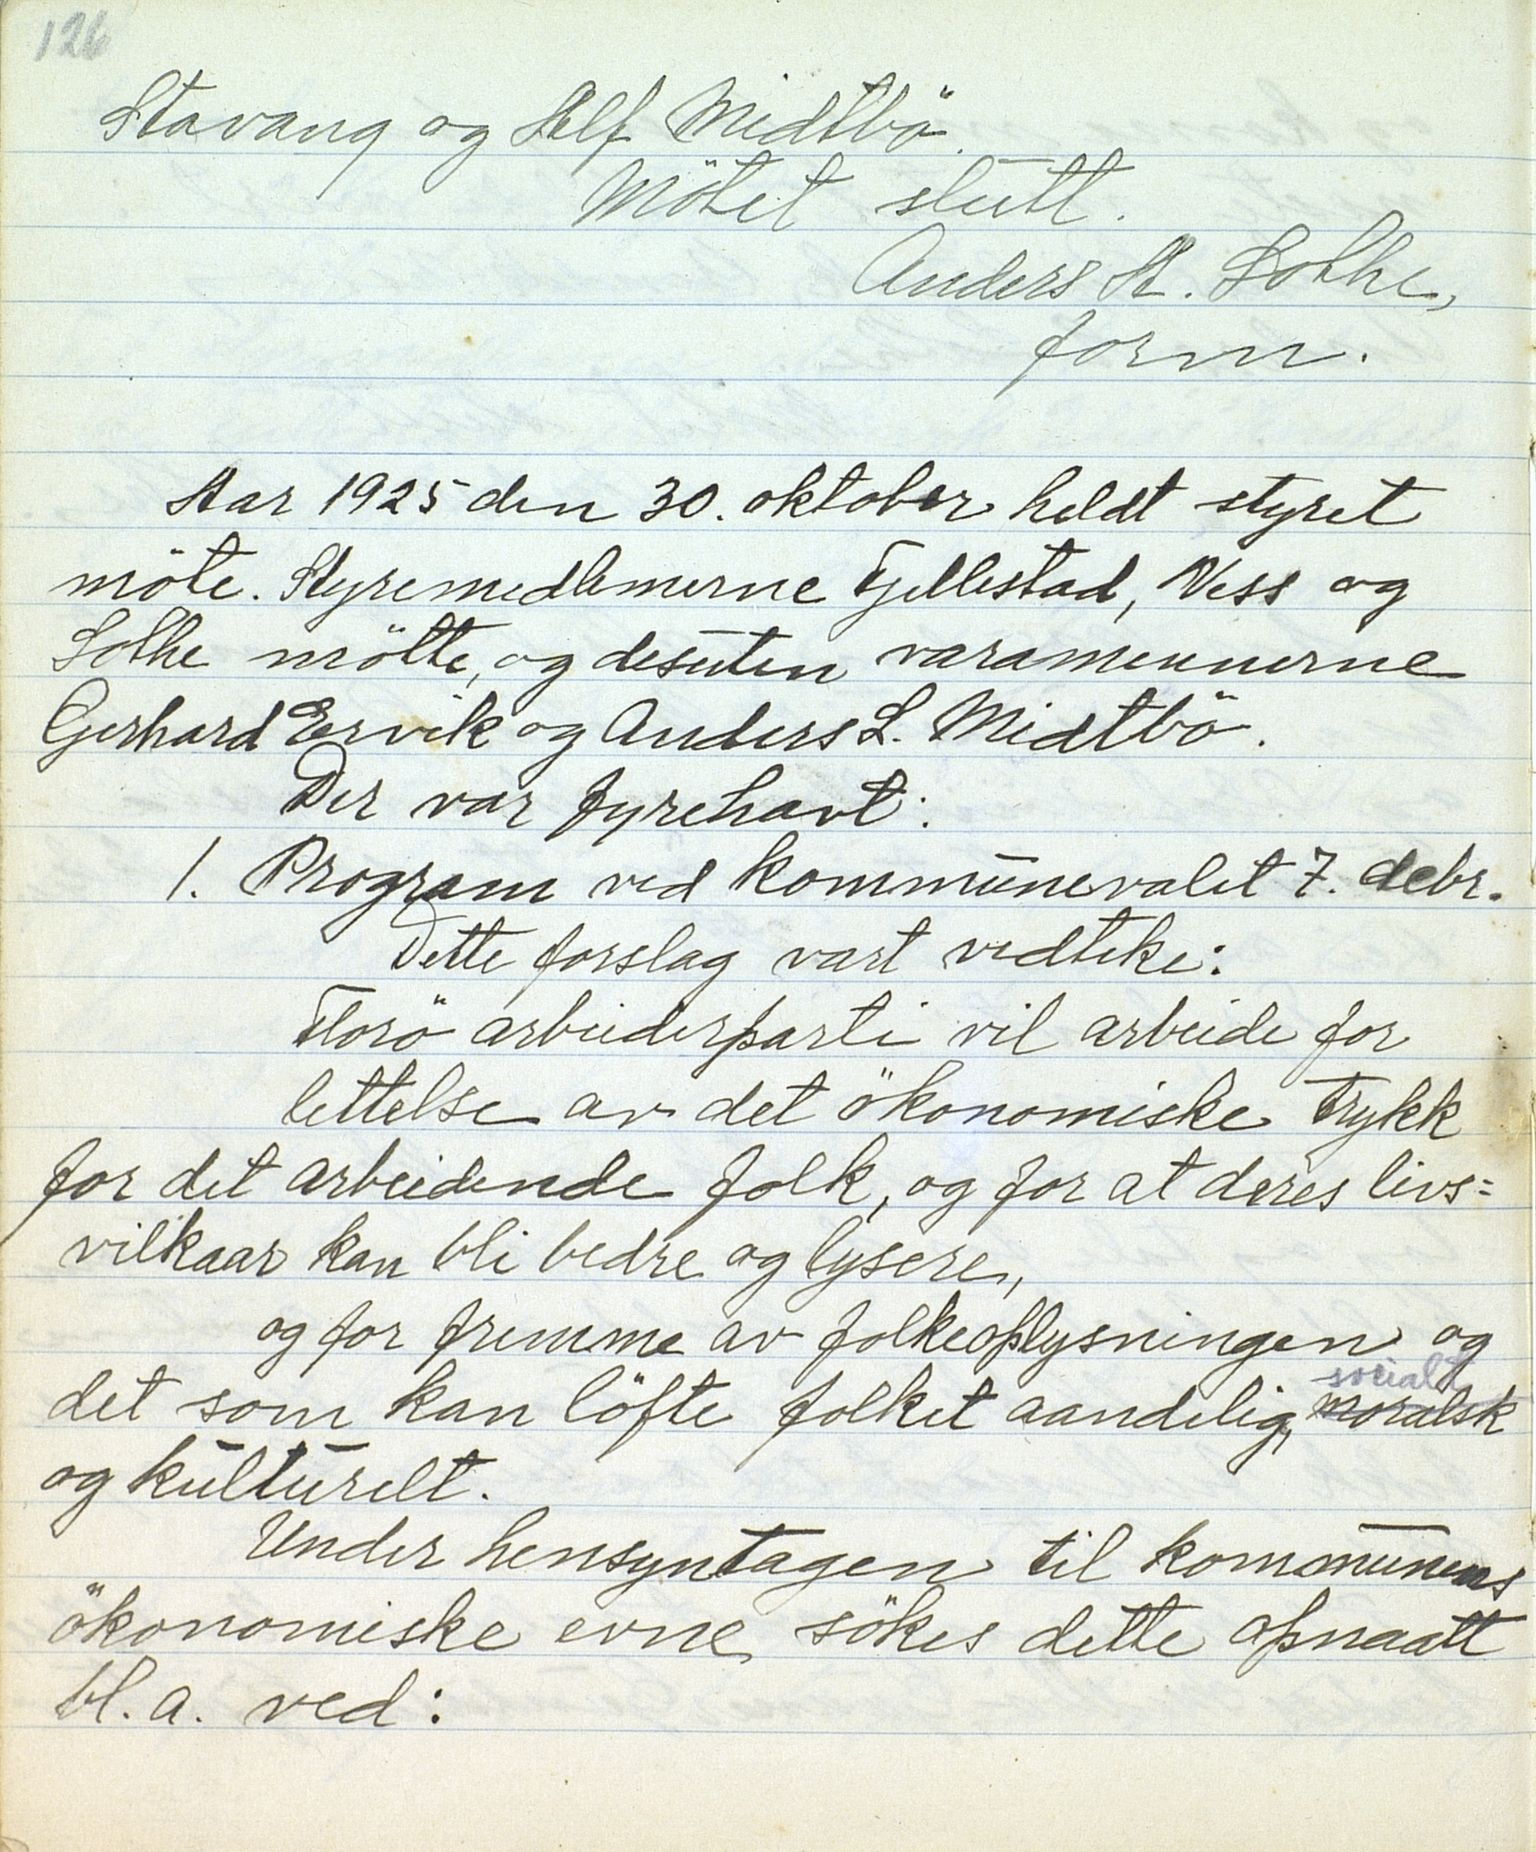 126
Stavang og Alf Midtbö.
Mötet slutt.
Anders A. Solhe,
form.
Aar 1925 den 30. oktober heldt styret
möte. Styremedlemerne Fjellestad, Ness og
Solhe mötte, og desuten varamennerne
Gerhard Ervik og Anders L. Midtbö.
Der var fyrehavt:
1. Program ved kommunevalet 7. debr.
Dette forslag vart vedteke:
Florö arbeiderparti vil arbeide for
lettelse av det ökonomiske trykk
for det arbeidende folk, og for at deres livs=
vilkaar kan bli bedre og lysere,
og for fremme av folkeoplysningen og
socialt
det som kan löfte folket aandelig, moralsk
og kulturelt.
Under hensyntagen til kommunens
ökonomiske evne sökes dette opnaatt
bl. a. ved: